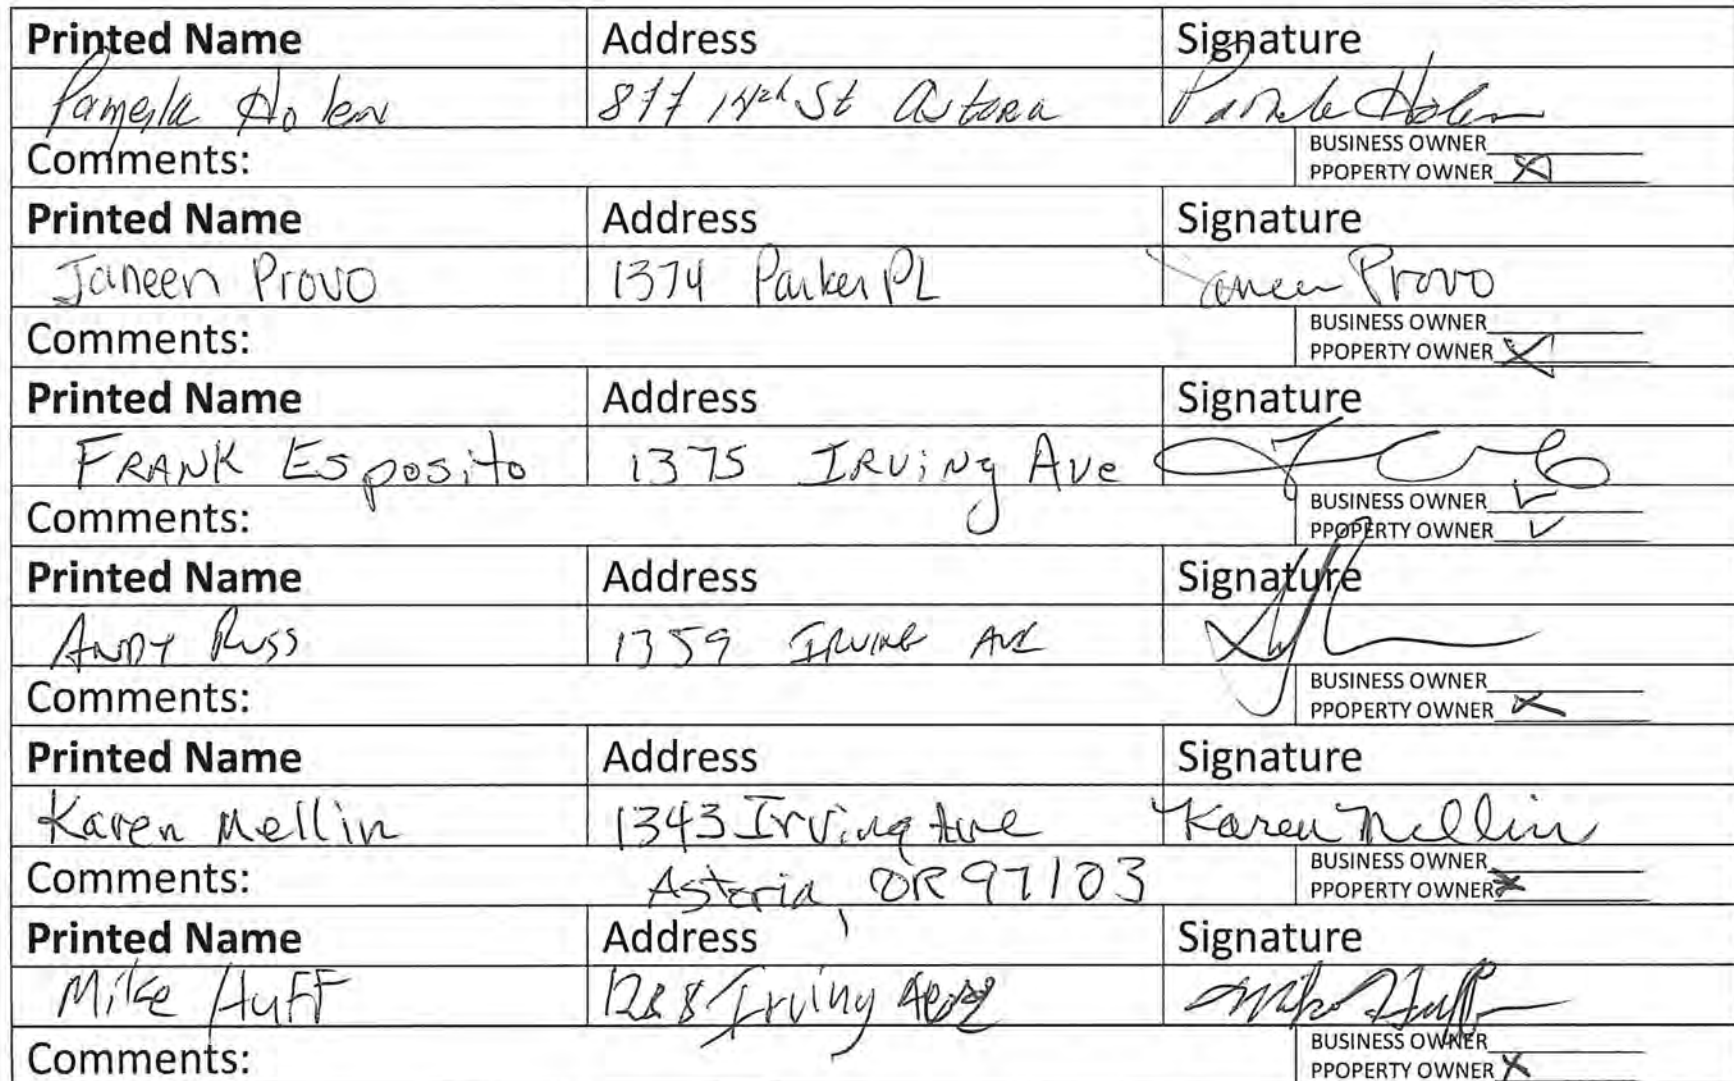 Printed Name Address Signature
Pamela Holen 14th St Astoria Pamela Holen
Comments: BUSINESS OWNER
PPOPERTY OWNER X
Printed Name Address Signature
Janeen Provo 1374 Parker PL Janeen Provo
Comments: BUSINESS OWNER
PPOPERTY OWNER X
Printed Name Address Signature
FRANK Esposito 1375 IRVING Ave
Comments: BUSINESS OWNER ✓
PPOPERTY OWNER ✓
Printed Name Address Signature
ANDY RUSS 1359 IRVING AVE
Comments: BUSINESS OWNER
PPOPERTY OWNER X
Printed Name Address Signature
Karen Mellin 1343 Irving Ave Karen Mellin
Comments: Astoria, OR 97103 BUSINESS OWNER
PPOPERTY OWNER X
Printed Name Address Signature
Mike Huff 1288 Irving Mike Huff
Comments: BUSINESS OWNER
PPOPERTY OWNER X